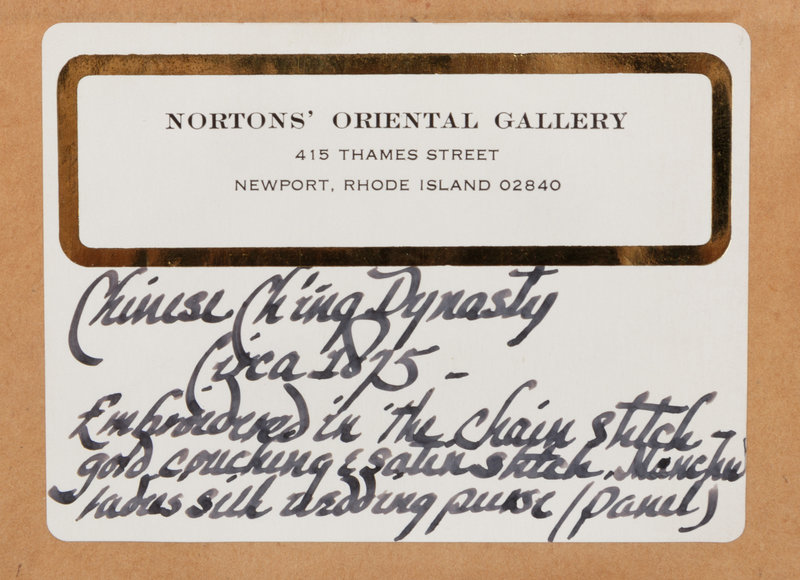 NORTONS' ORIENTAL GALLERY
415 THAMES STREET
NEWPORT, RHODE ISLAND 02840
Chinese Ch'ing Dynasty
Circa 1875 -
Embroidered in the chain stitch -
gold couching & satin stitch. Manchu
ladies silk wedding purse (panel)